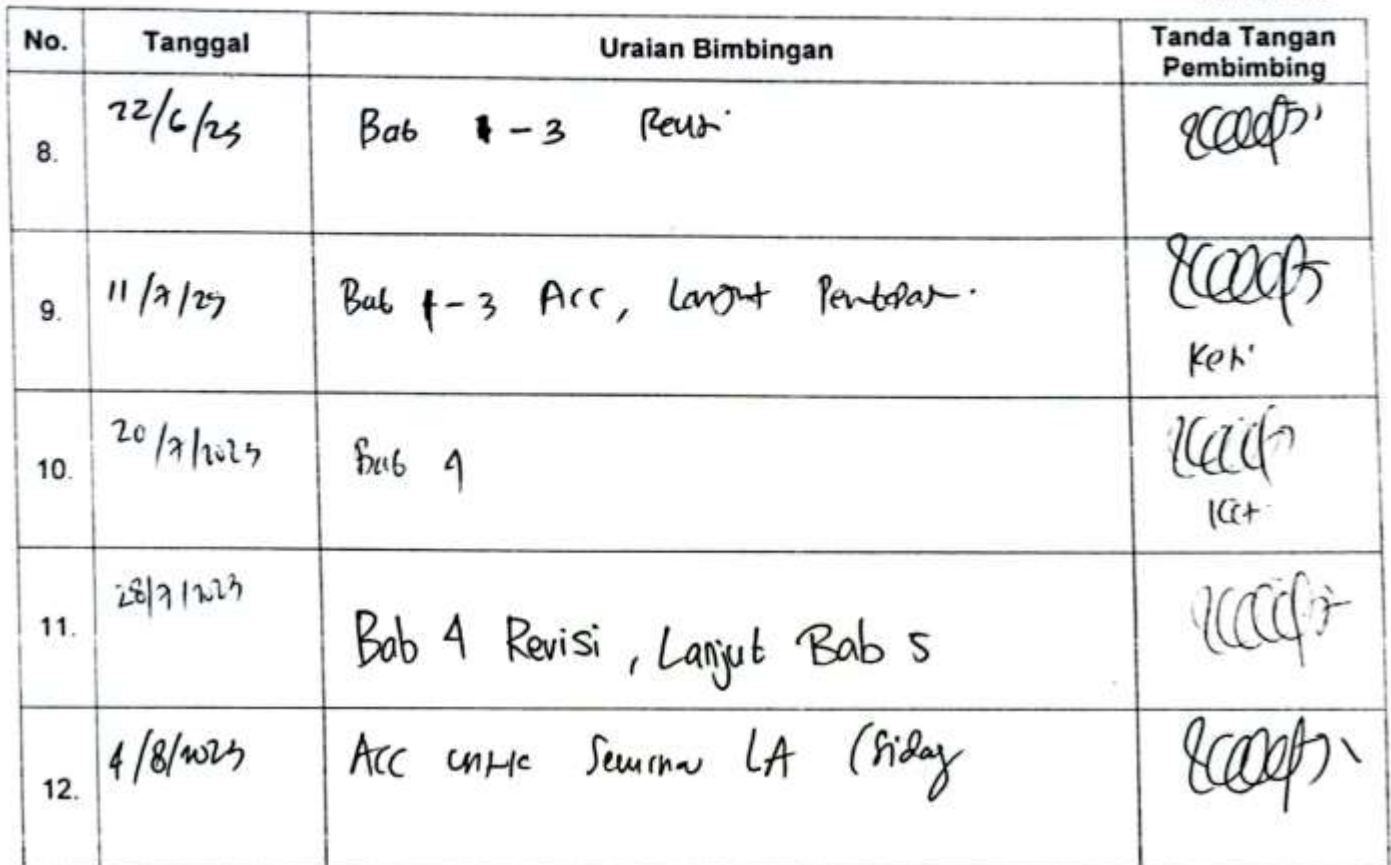 No. Tanggal Uraian Bimbingan Tanda Tangan Pembimbing
8. 22/6/23 Bab 1-3 Revisi
9. 11/7/23 Bab 1-3 Acc, Lanjut
10. 20/7/2023 Bab 4
11. 28/7/2023 Bab 4 Revisi, Lanjut Bab 5
12. 4/8/2023 Acc untuk Seminar LA (Sidang